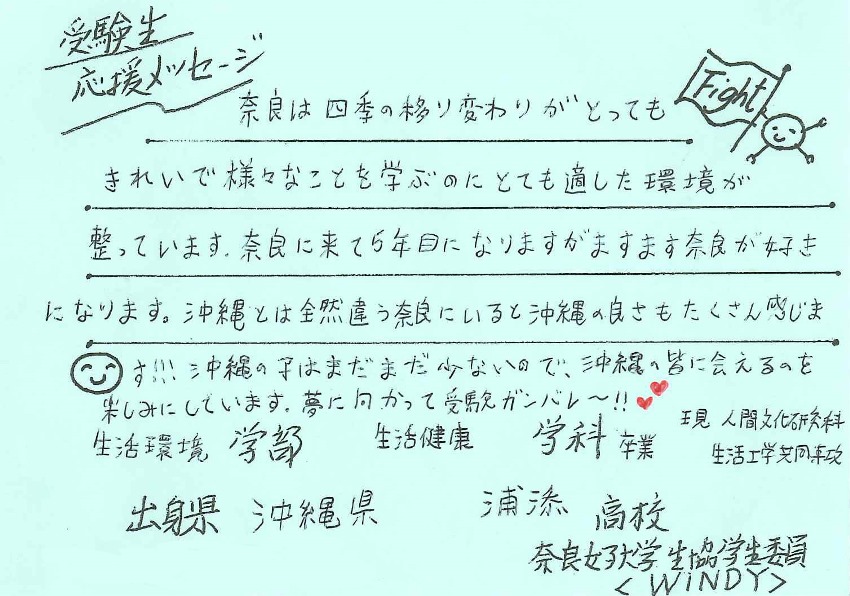 受験生
応援メッセージ
Fight
奈良は四季の移り変わりがとっても
きれいで様々なことを学ぶのにとても適した環境が
整っています。奈良に来て5年目になりますがますます奈良が好き
になります。沖縄とは全然違う奈良にいると沖縄の良さもたくさん感じま
す!!! 沖縄の子はまだまだ少ないので、沖縄の皆に会えるのを
楽しみにしています。夢に向かって受験ガンバレ〜!!
生活環境 学部 生活健康 学科 卒業
現 人間文化研究科
生活工学共同専攻
出身県 沖縄県 浦添 高校
奈良女子大学生協学生委員
<WINDY>